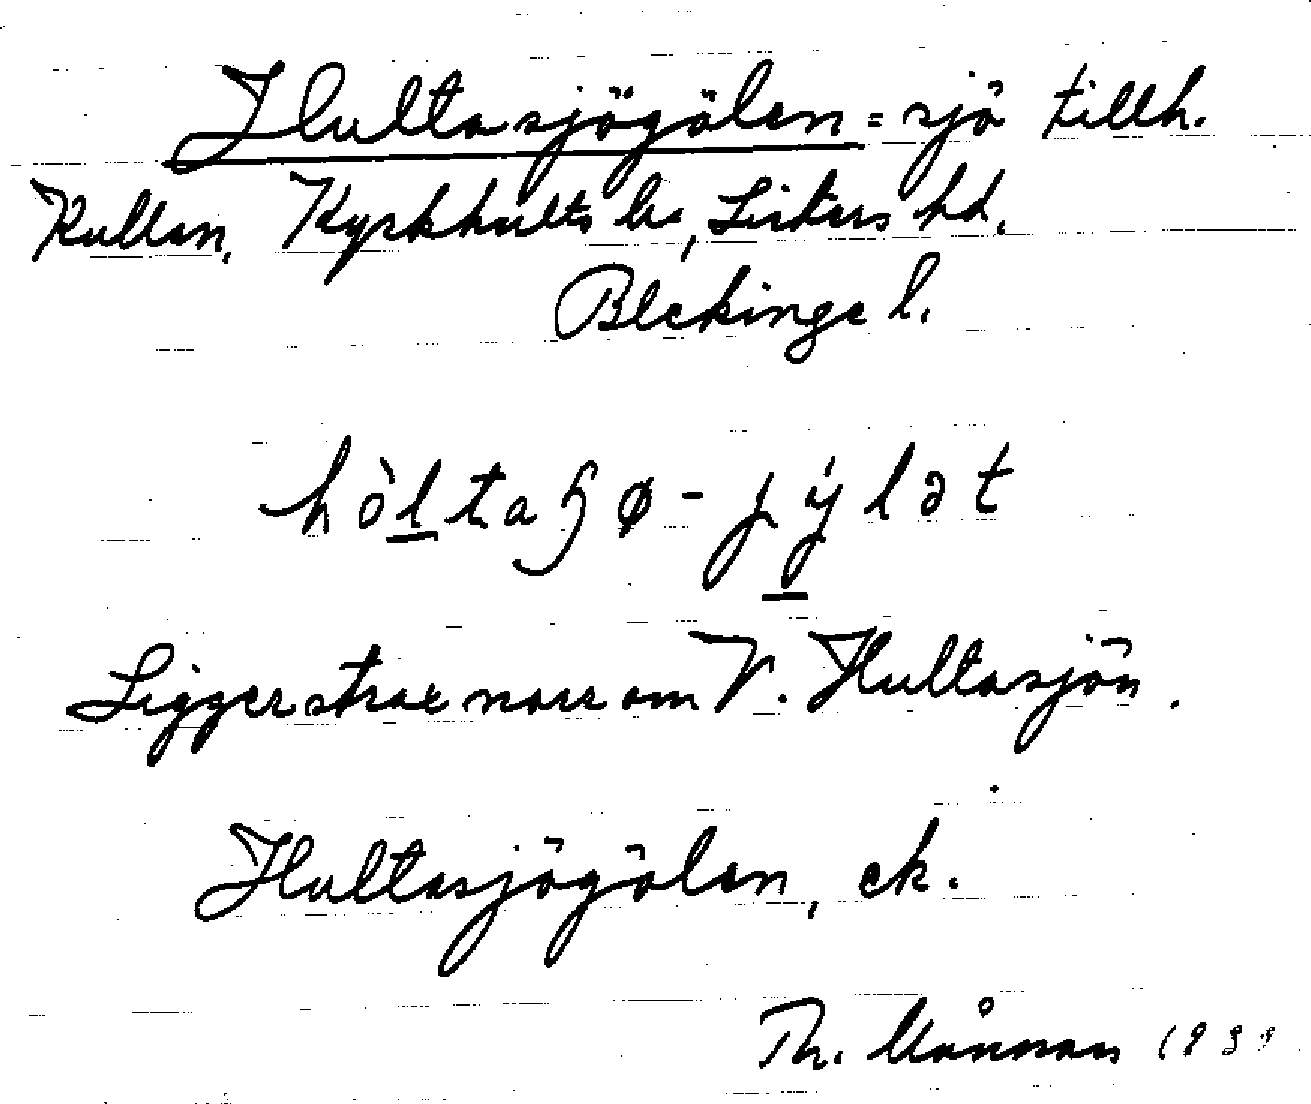 Hultasjögölen = sjö tillh.
Kullen, Kyrkhults sn, Listers hd.
Blekinge l.
hòltaɧø-jýlət
Ligger strax norr om V. Hultasjön.
Hultasjögölen, ek.
Th. 1939